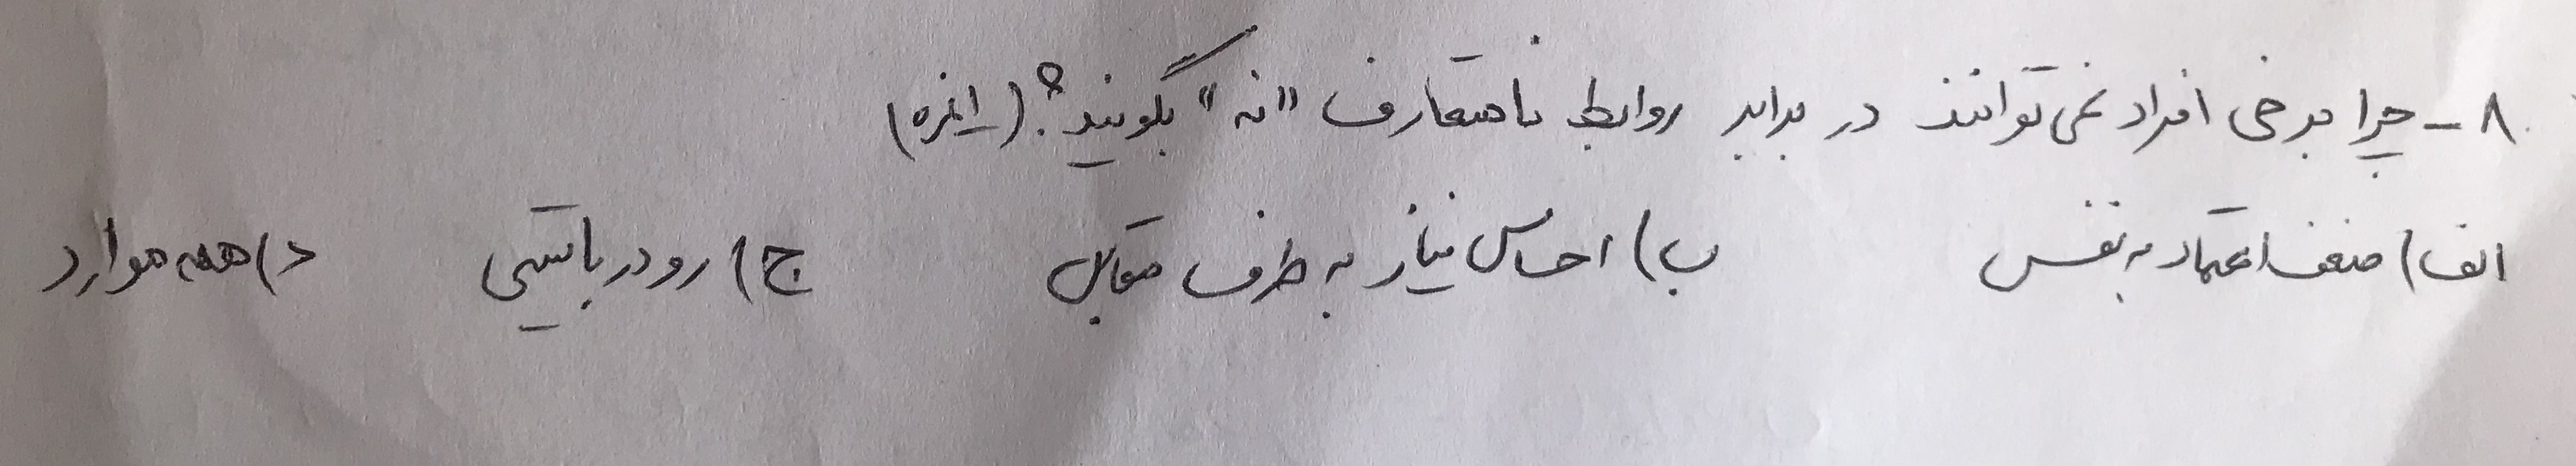 ۸ - چرا برخی افراد نمی‌توانند در برابر روابط نامتعارف "نه" بگویند؟ (۱نمره)
الف) ضعف اعتماد به نفس ب) احساس نیاز به طرف مقابل ج) رودربایستی د) همه موارد